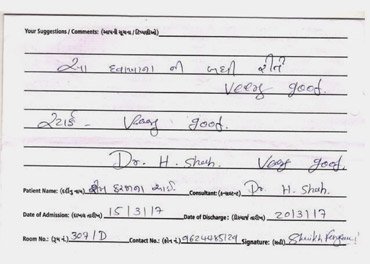 Your Suggestions / Comments: (આપની સૂચના / ટિપ્પણીઓ)
આ દવાખાના ની બધી રીતે
Veery good.
સ્ટાફ - Veery good.
Dr. H. Shah. Veery good.
Patient Name: (દર્દીનું નામ) Consultant: (ડૉક્ટર) Dr. H. Shah.
Date of Admission: (દાખલ તારીખ) 15/3/17 Date of Discharge: (ડિસ્ચાર્જ તારીખ) 20/3/17
Room No.: (રૂમ નં.) 307/D Contact No.: (ફોન નં.) 9624485129 Signature: (સહી) Sheikh